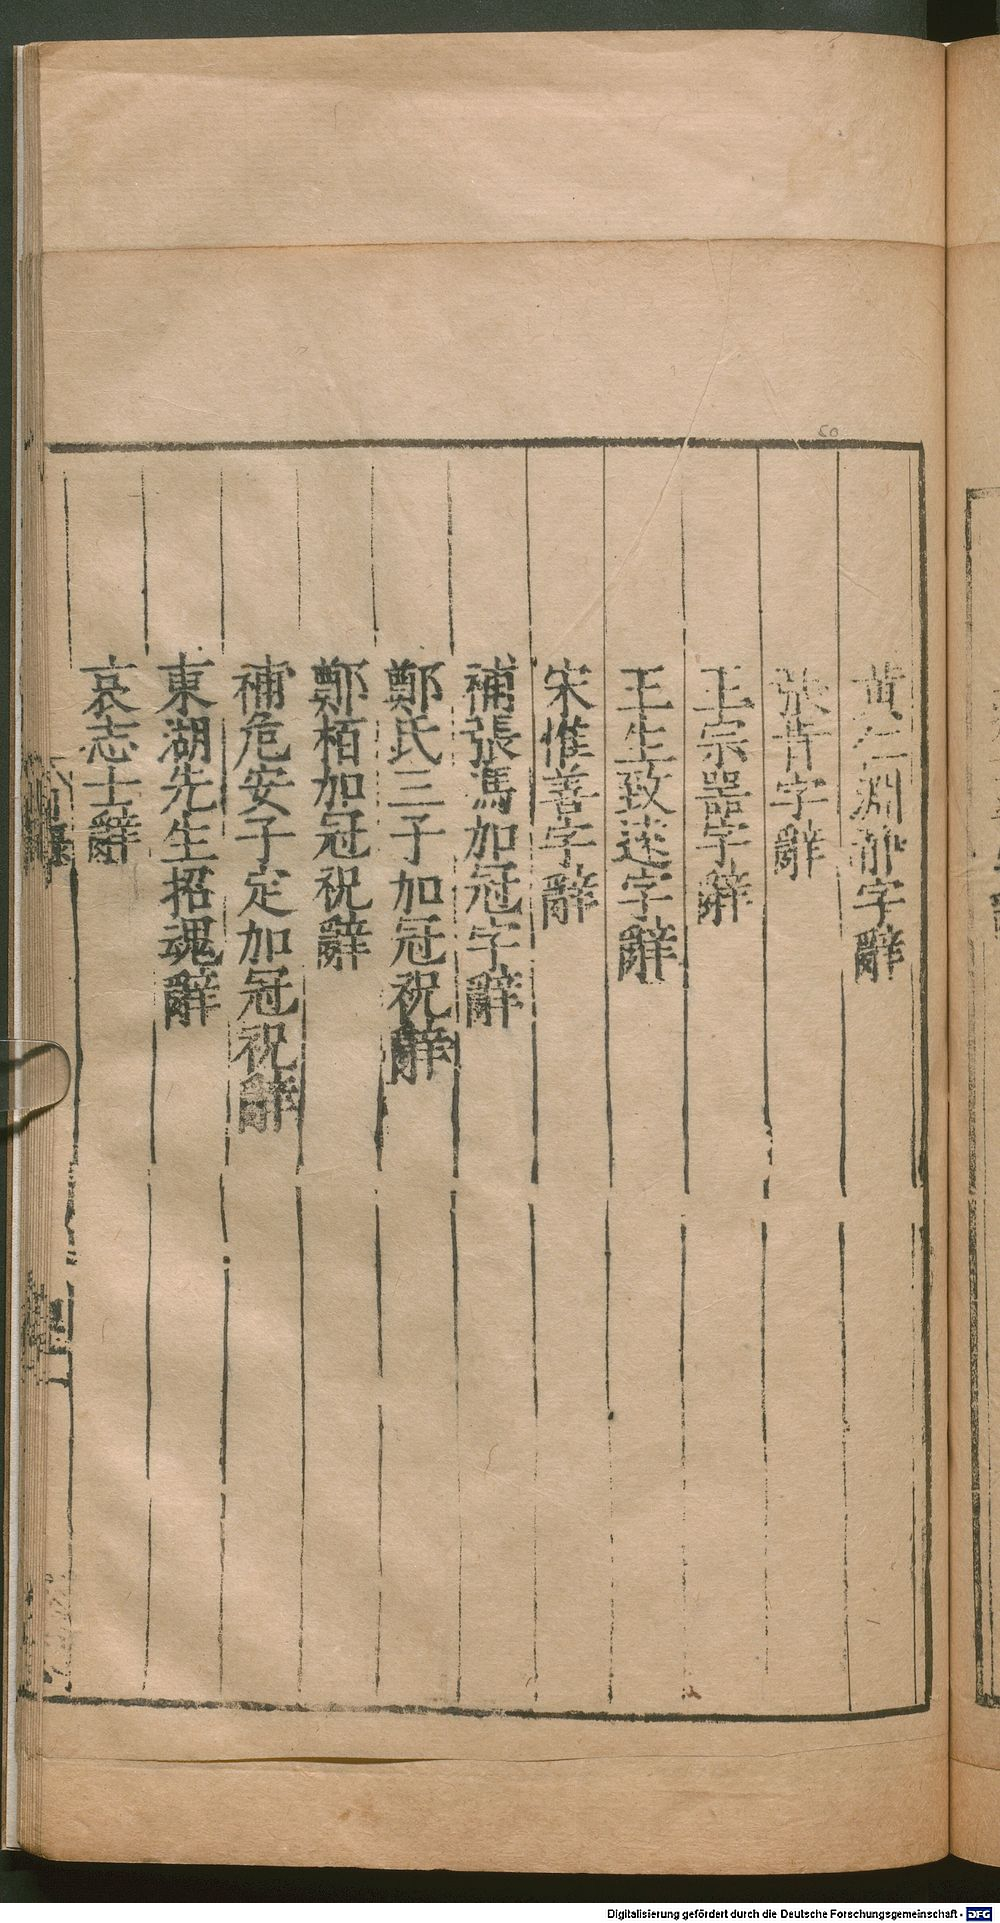 黃仁淵靜字辭
張肯字辭
王宗噐字辭
王生致遠字辭
宋惟善字辭
補張馮加冠字辭
鄭氏三子加冠祝辭
鄭栢加冠祝辭
補危安子定加冠祝辭
東湖先生招魂辭
哀志士辭
50
Digitalisierung gefördert durch die Deutsche Forschungsgemeinschaft - DFG